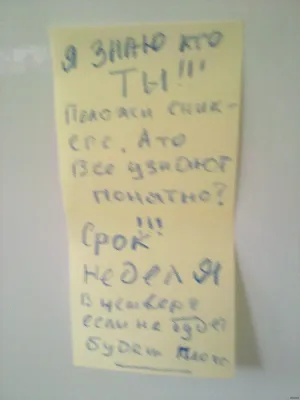 Я ЗНАЮ КТО
ТЫ!!!
Положи сник-
ерс. А то
Все узнают
понятно?
!!!
Срок
недел Я
В четверг
если не будет
будет плохо